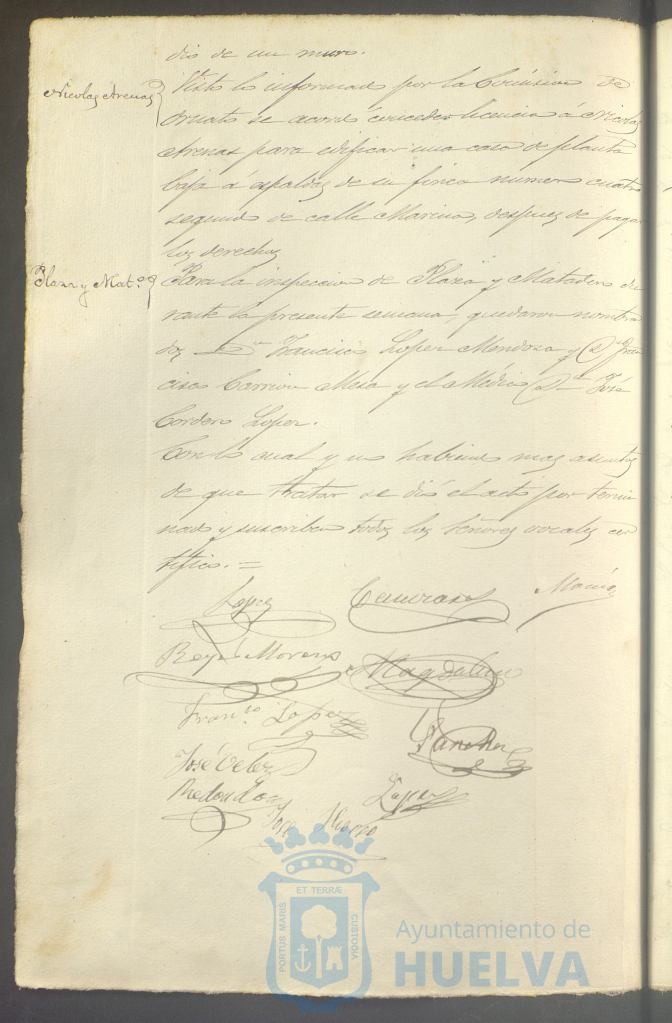 dio de un muro.
Nicolas Arenas
Visto lo informado por la Comision de
Ornato se acordó conceder licencia á Nicolás
Arenas para edificar una casa de planta
baja á espaldas de su finca numero cuatro
segundo de calle Marina, despues de pagar
los derechos
Plaza y Mat.o
Para la inspeccion de Plaza y Matadero du
rante la presente semana, quedaron nombra
dos Dn Francisco Lopez Mendoza y Dn Fran
cisco Carrion Mesa y el Médico Dn José
Cordero Lopez.
Con lo cual y no habiendo mas asuntos
de que tratar se dió el acto por termi
nado y suscriben todos los Señores vocales cer
tifico. =
Lopez
Reyes Moreno
Magdalena
Franco Lopez
Sanchez
José Velez
Redondo
Lopez
ET TERRÆ
PORTUS MARIS
CUSTODIA
Ayuntamiento de
HUELVA